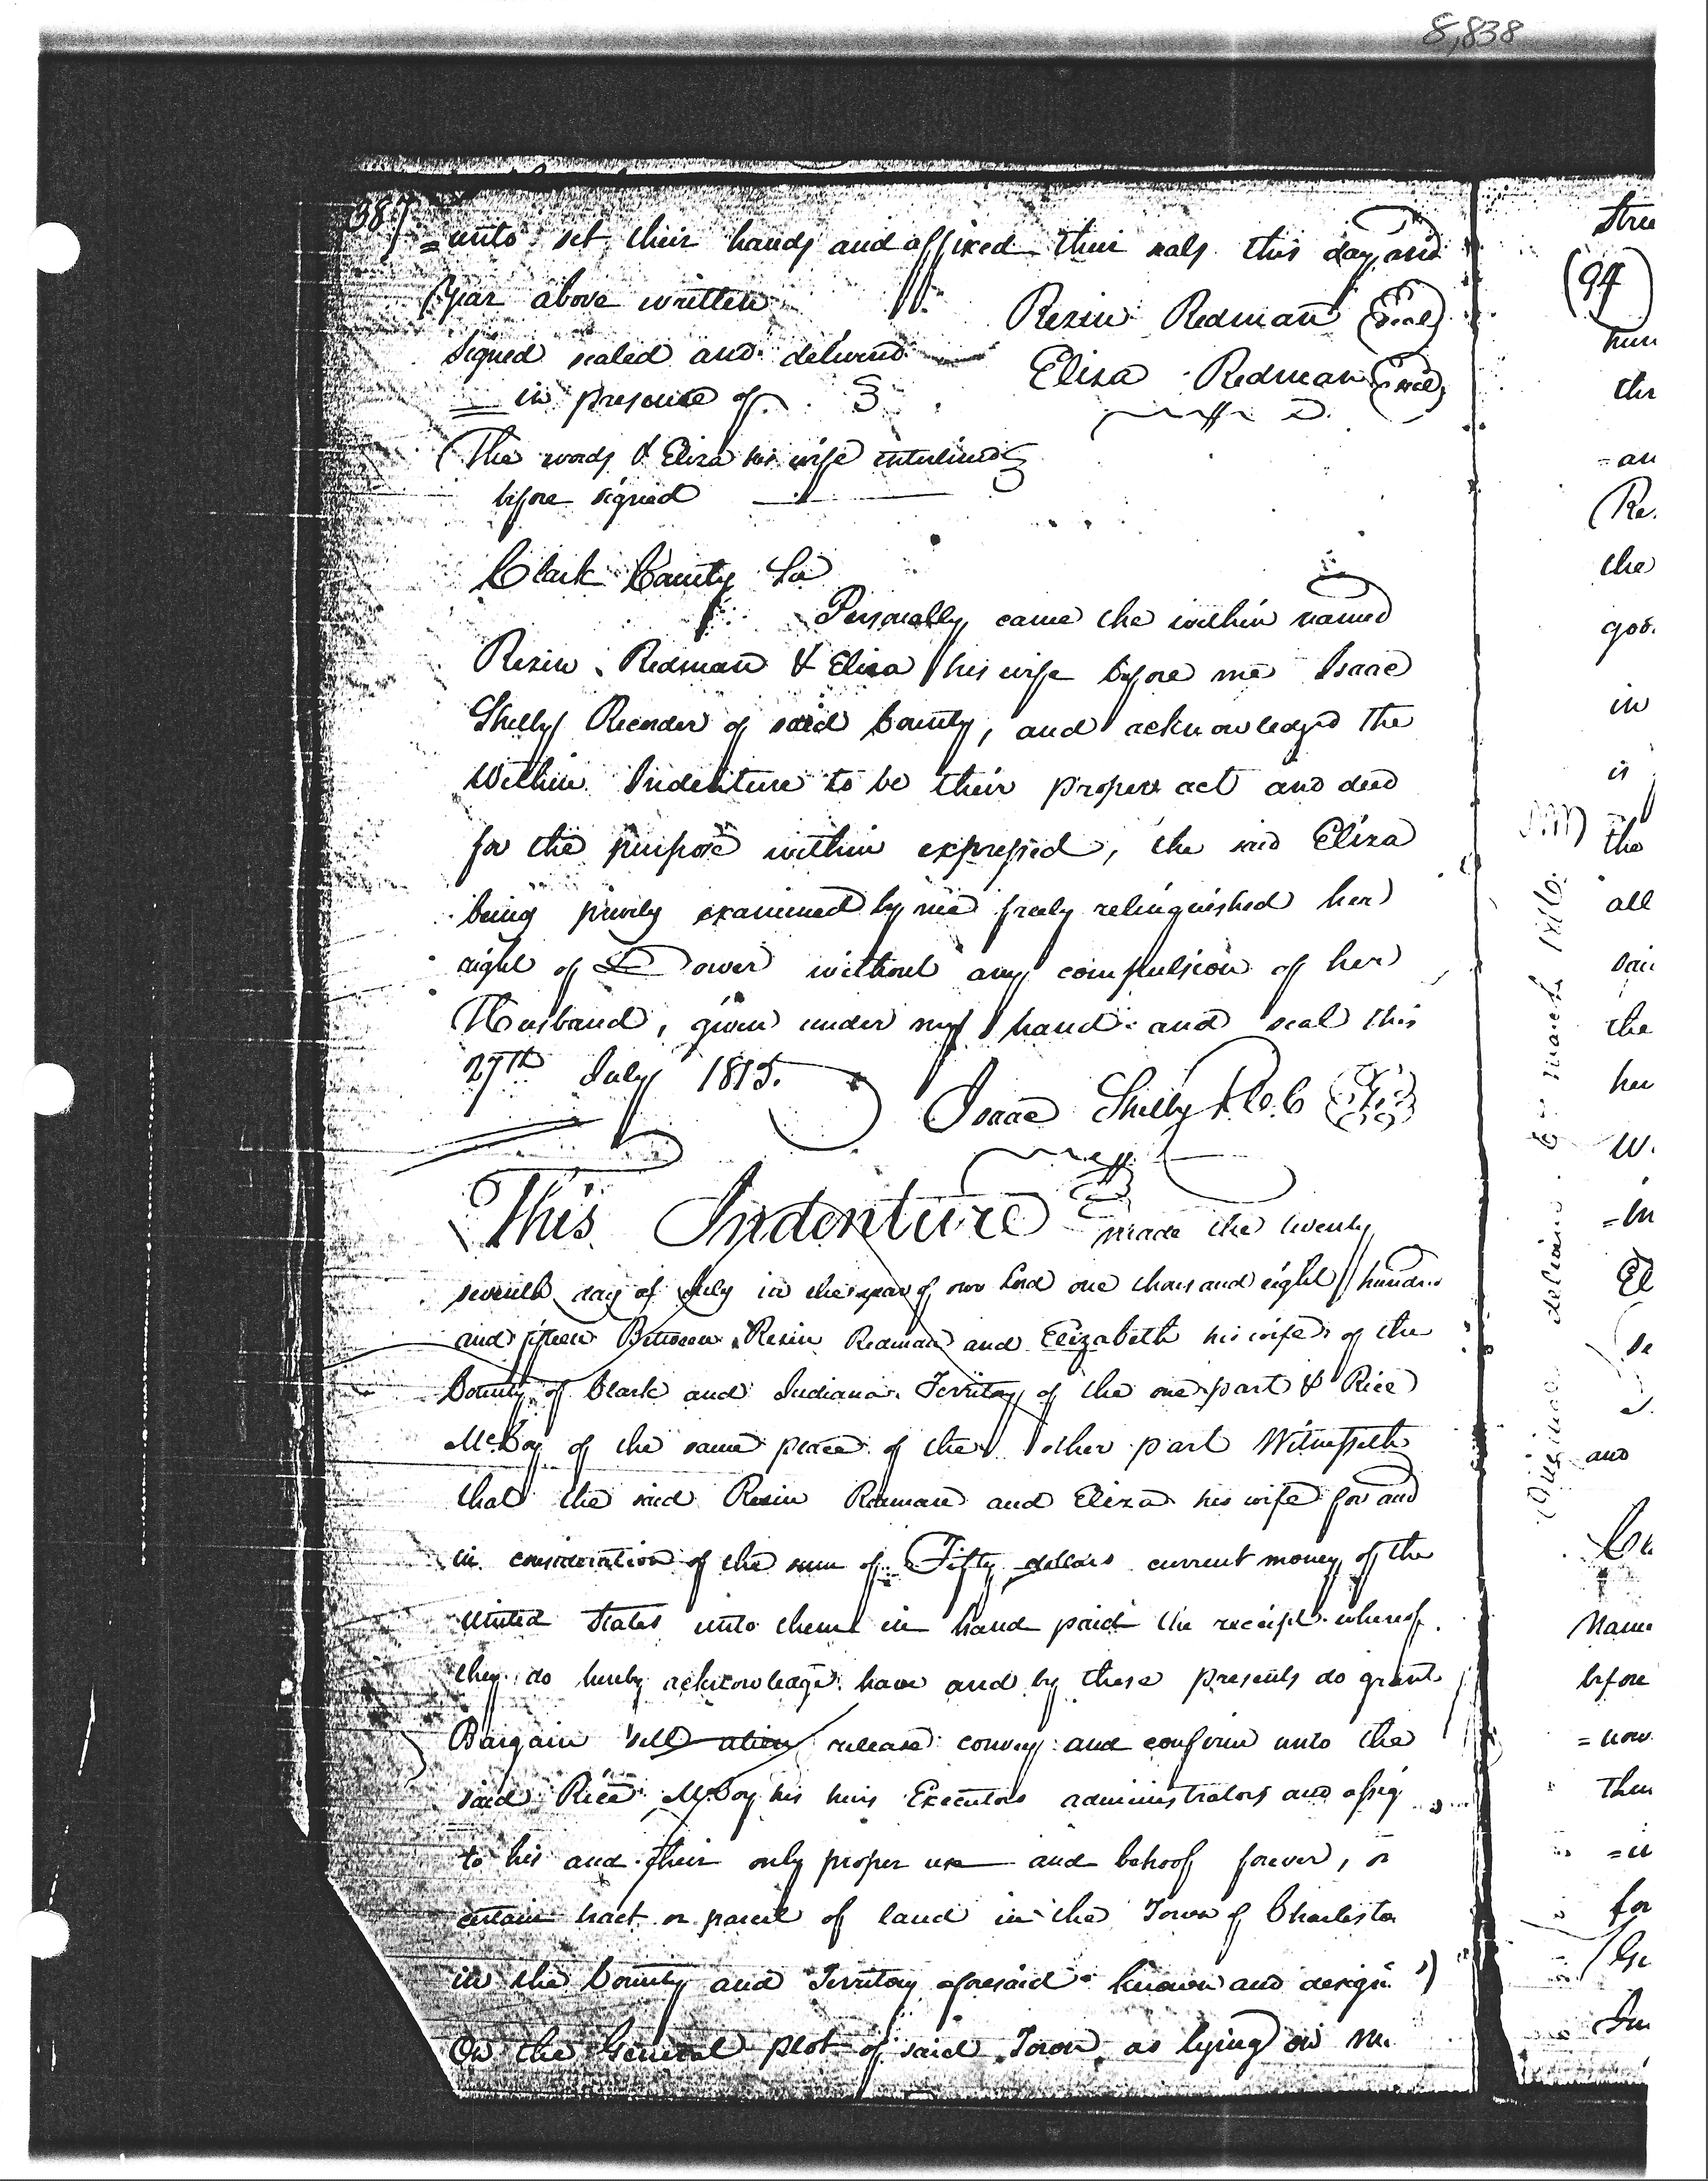 8,838
387
=unto set their hands and affixed their seals this day and
Year above written
Rezin Redman (Seal)
Signed sealed and delivered
Eliza Redman (Seal)
in presence of
(The words & Eliza his wife interlined
before signed
Clark County Sc
Personally came the within named
Rezin Redman & Eliza his wife before me Isaac
Shelby Recorder of said County, and acknowledged the
Within Indenture to be their proper act and deed
for the purpose within expressed, the said Eliza
being privily examined by me freely relinquished her
right of Dower without any compulsion of her
Husband, given under my hand and seal this
27th July 1815.
Isaac Shelby R.C.C
This Indenture made the twenty
seventh day of July in the year of our Lord one thousand eight hundred
and fifteen Between Rezin Redman and Elizabeth his wife of the
County of Clark and Indiana Territory of the one part & Rice
McCoy of the same place of the other part Witnesseth
that the said Rezin Redman and Eliza his wife for and
in consideration of the sum of Fifty dollars current money of the
United States unto them in hand paid the receipt whereof
they do hereby acknowledge have and by these presents do grant
Bargain sell alien release convey and confirm unto the
said Rice McCoy his heirs Executors administrators and assig
to his and their only proper use and behoof forever,
certain tract or parcel of land in the Town of Charlesto
in the County and Territory aforesaid known and desig
On the General plot of said Town as lying on
Stree
(94)
the
=an
(Re.
the
goo.
in
is
the
all
sai
the
her
W.
=in
El
Se
and
Name
before
=now
then
for
Original delivered 6 March 1816.